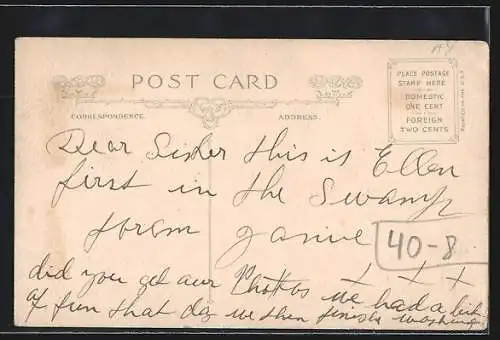 POST CARD
CORRESPONDENCE.
ADDRESS.
PLACE POSTAGE
STAMP HERE
DOMESTIC
ONE CENT
FOREIGN
TWO CENTS
Dear Sister this is Ellen
first in the Swamp
from Janie
40-8
X X X
did you get our Photos we had a bit
of fun that day we then finish washing